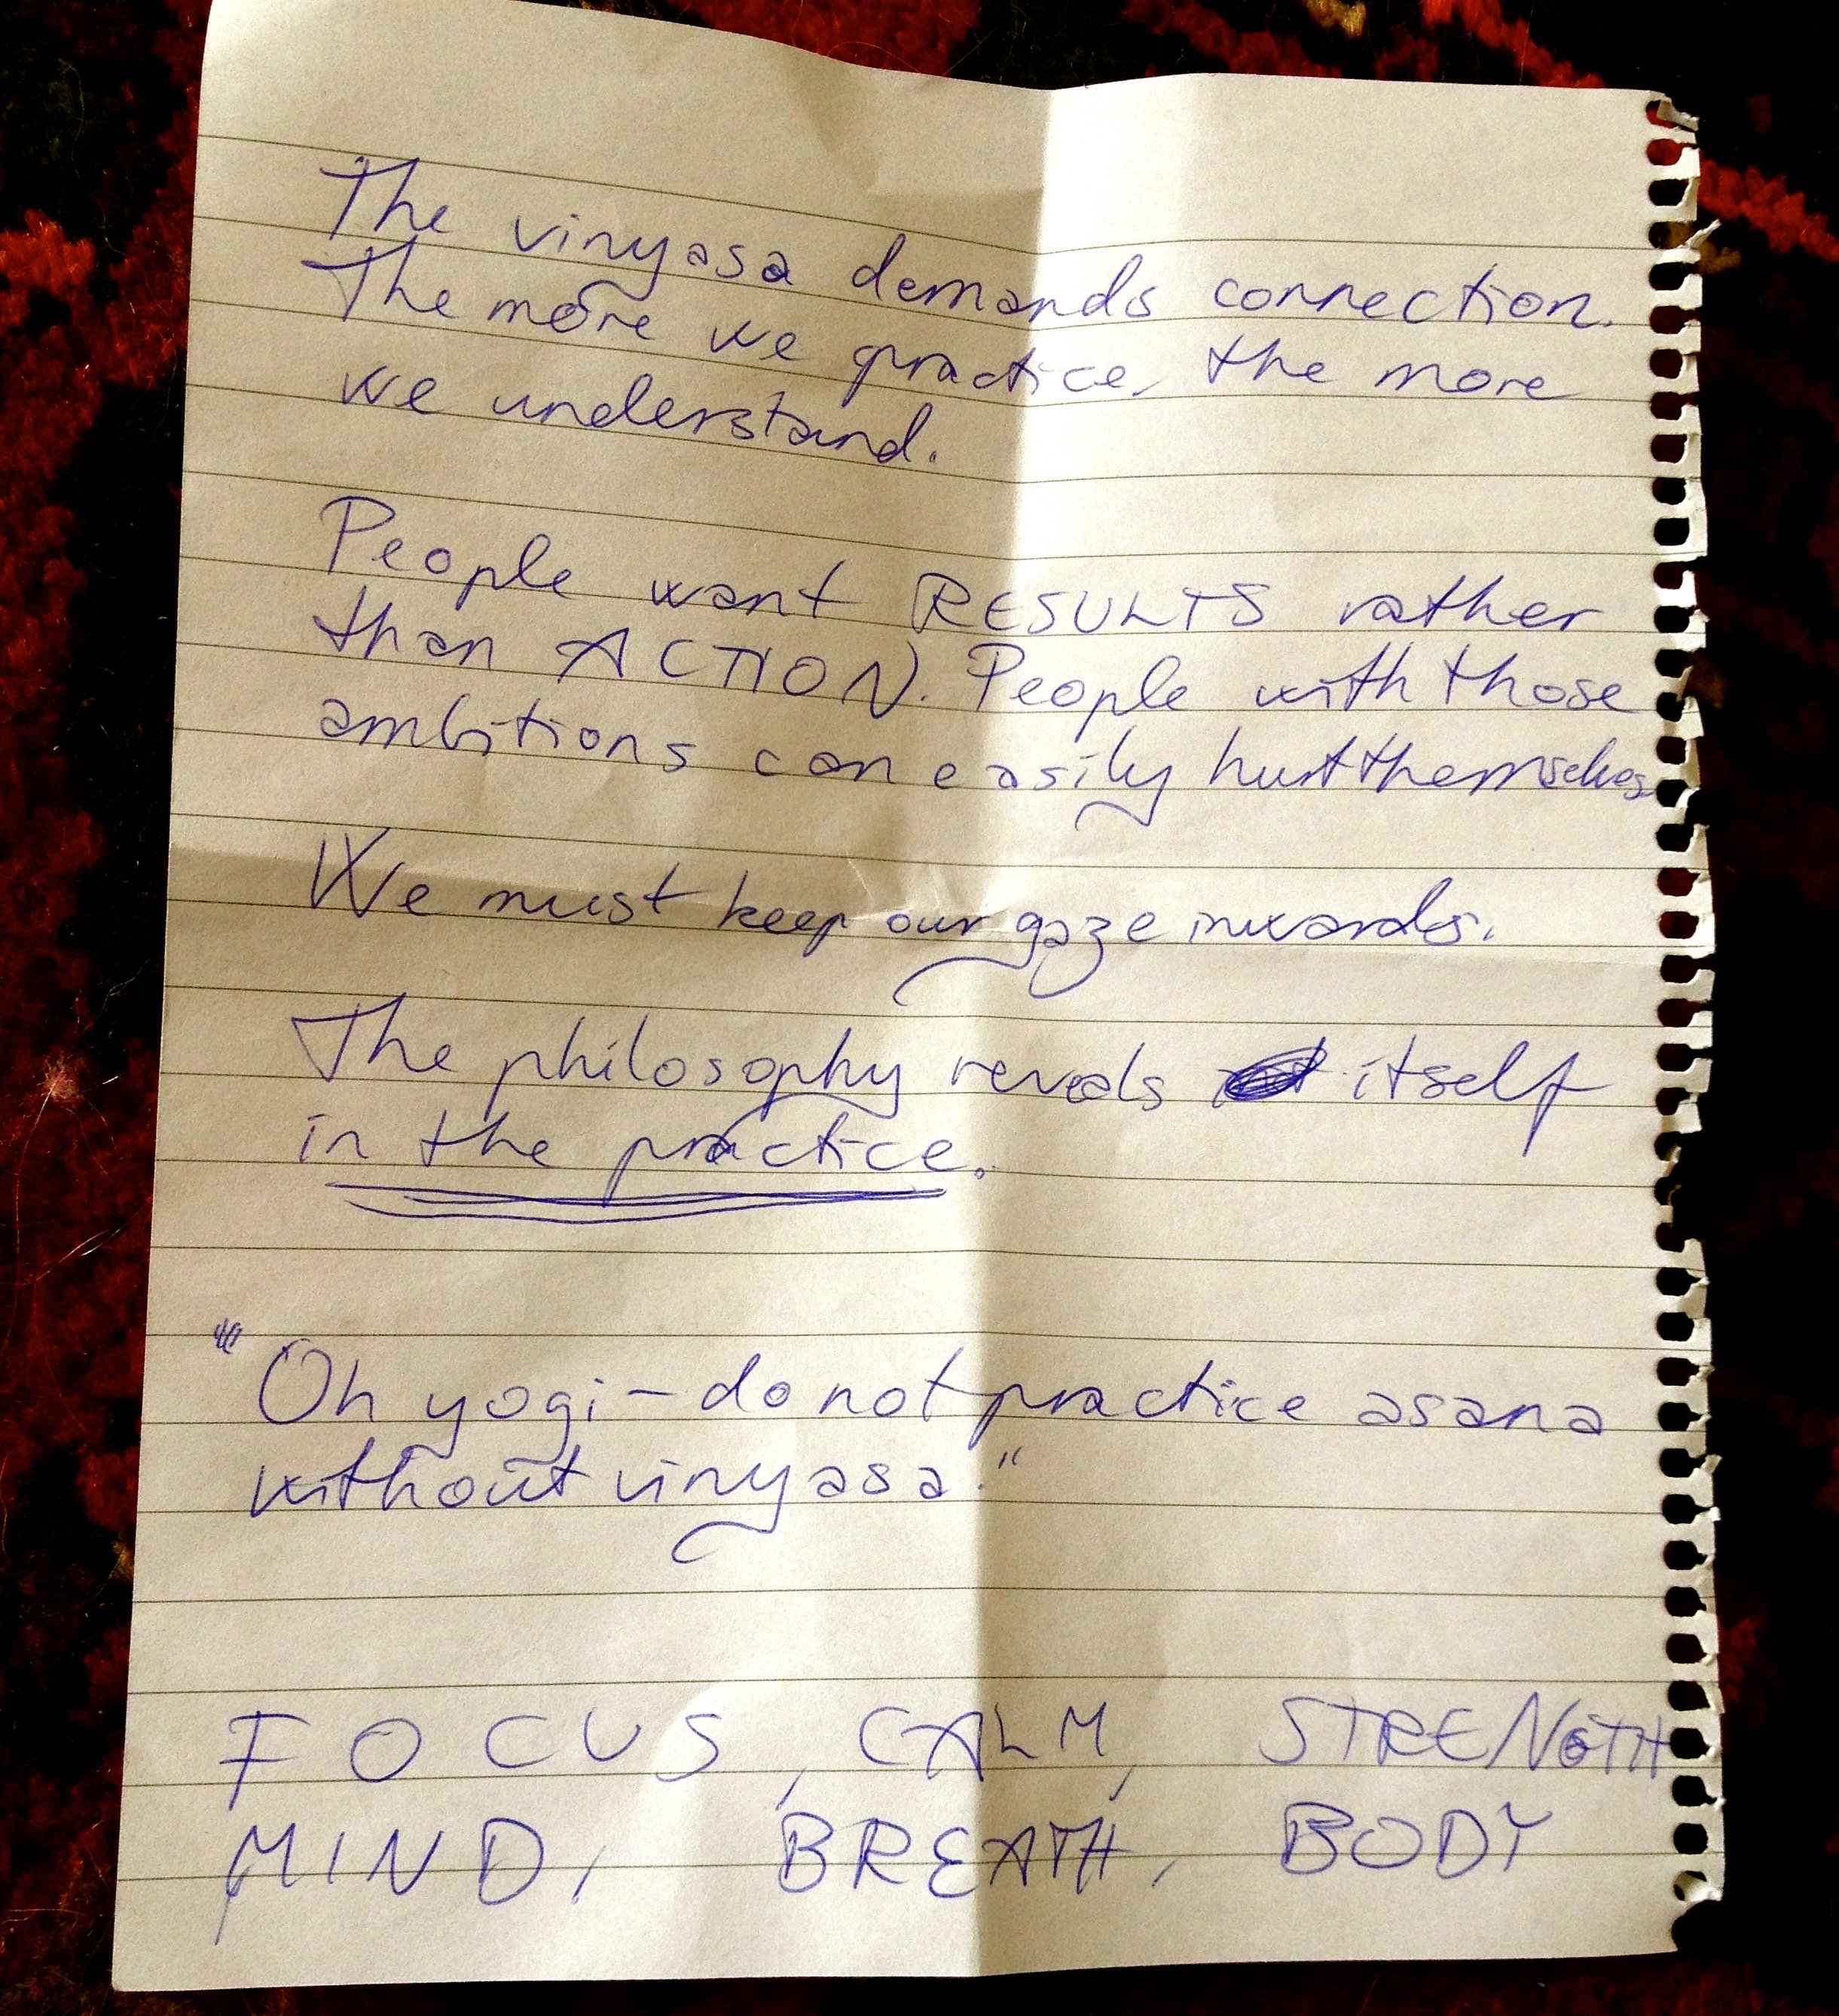 The vinyasa demands connection.
The more we practice, the more
we understand.
People want RESULTS rather
than ACTION. People with those
ambitions can easily hurt themselves.
We must keep our gaze inwards.
The philosophy reveals itself
in the practice.
"Oh yogi – do not practice asana
without vinyasa."
FOCUS, CALM, STRENGTH
MIND, BREATH, BODY